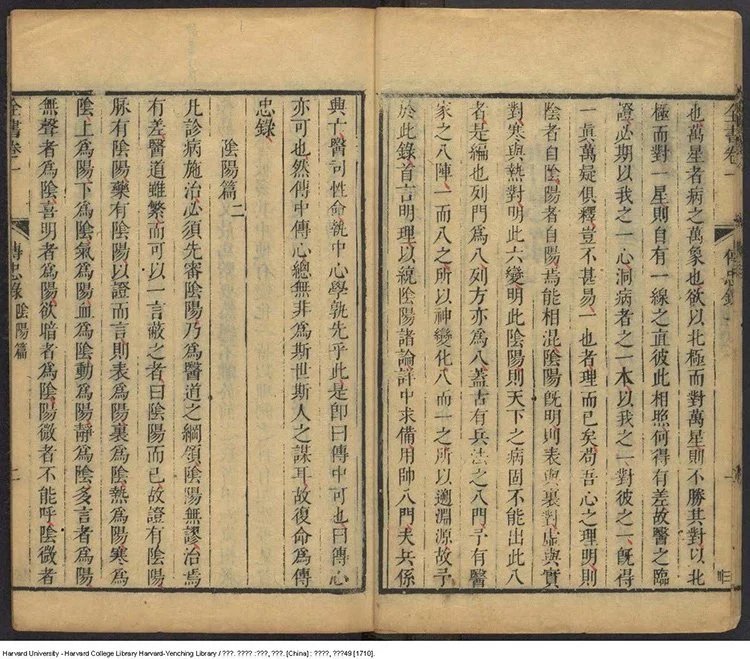 也萬星者病之萬象也欲以北極而對萬星則不勝其對以北
極而對一星則自有一線之直彼此相照何得有差故醫之臨
證必期以我之一心洞病者之一本以我之一對彼之一既得
一眞萬疑俱釋豈不甚易一也者理而已矣苟吾心之理明則
陰者自陰陽者自陽焉能相混陰陽既明則表與裏對虛與實
對寒與熱對明此六變明此陰陽則天下之病固不能出此八
者是編也列門爲八列方亦爲八蓋古有兵法之八門予有醫
家之八陣一而八之所以神變化八而一之所以遡淵源故予
於此錄首言明理以統陰陽諸論詳中求備用帥八門夫兵係
興亡醫司性命執中心學孰先乎此是卽曰傳中可也曰傳心
亦可也然傳中傳心總無非爲斯世斯人之謀耳故復命爲傳
忠錄
陰陽篇 二
凡診病施治必須先審陰陽乃爲醫道之綱領陰陽無謬治焉
有差醫道雖繁而可以一言蔽之者曰陰陽而已故證有陰陽
脉有陰陽藥有陰陽以證而言則表爲陽裏爲陰熱爲陽寒爲
陰上爲陽下爲陰氣爲陽血爲陰動爲陽靜爲陰多言者爲陽
無聲者爲陰喜明者爲陽欲暗者爲陰陽微者不能呼陰微者
全書卷一
傳忠錄 陰陽篇
二
Harvard University - Harvard College Library Harvard-Yenching Library / ???. ???? :???, ???. [China] : ????, ???49 [1710].